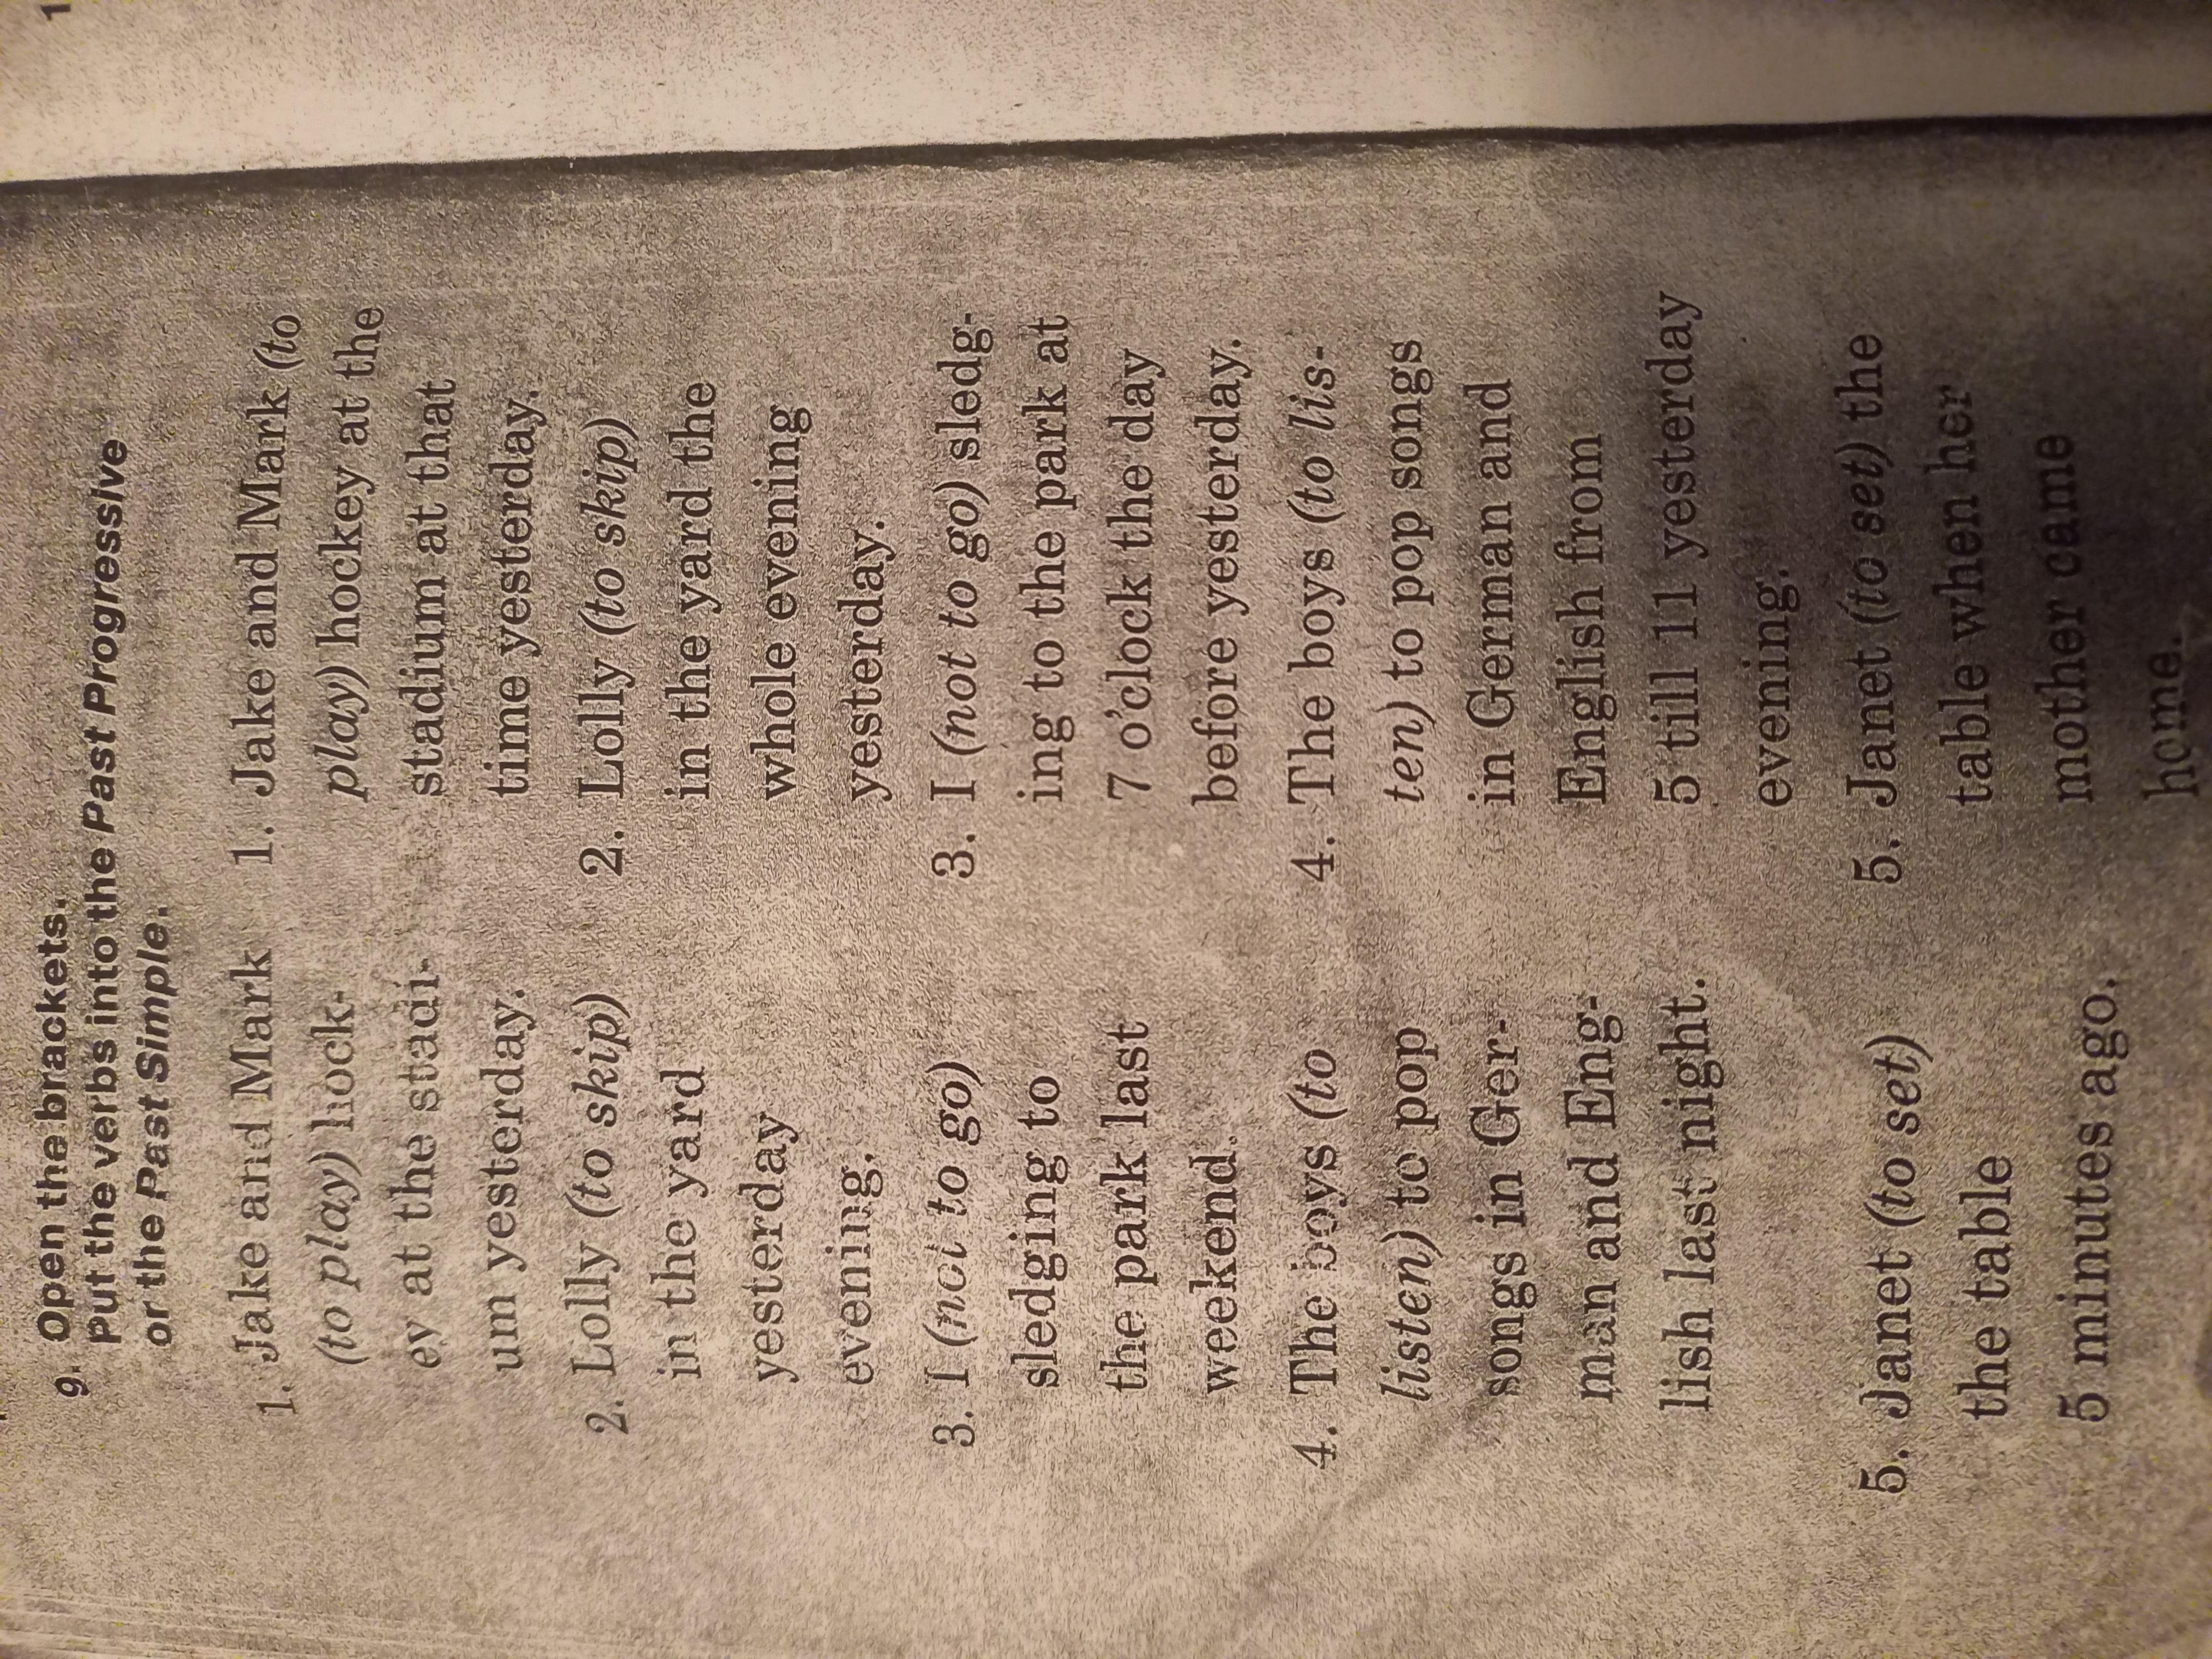 1
9. Open the brackets.
Put the verbs into the Past Progressive
or the Past Simple.
1. Jake and Mark
(to play) hock-
ey at the stadi-
um yesterday.
2. Lolly (to skip)
in the yard
yesterday
evening.
3. I (not to go)
sledging to
the park last
weekend.
4. The boys (to
listen) to pop
songs in Ger-
man and Eng-
lish last night.
5. Janet (to set)
the table
5 minutes ago.
1. Jake and Mark (to
play) hockey at the
stadium at that
time yesterday.
2. Lolly (to skip)
in the yard the
whole evening
yesterday.
3. I (not to go) sledg-
ing to the park at
7 o'clock the day
before yesterday.
4. The boys (to lis-
ten) to pop songs
in German and
English from
5 till 11 yesterday
evening.
5. Janet (to set) the
table when her
mother came
home.